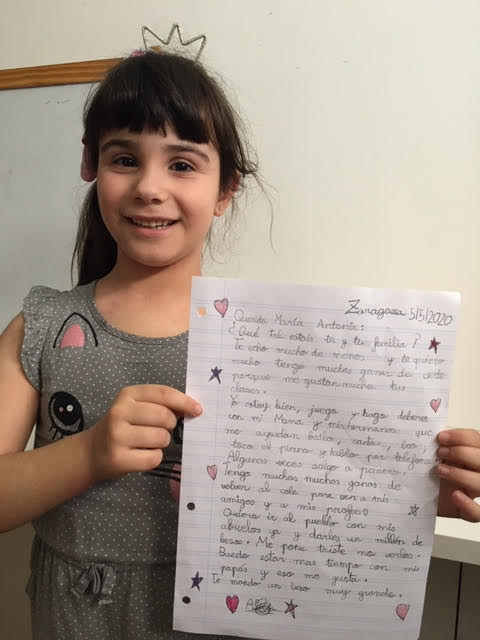 Zaragoza 5/5/2020
Querida María Antonia:
¿Qué tal estáis tú y tu familia?
Te echo mucho de menos. y te quiero
mucho tengo muchas ganas de verte
porque me gustan mucho tus
clases.
Yo estoy bien, juego y hago deberes
con mi Mama y mis hermanos que
me ayudan bailo, canto, leo,
toco el piano y hablo por teléfono.
Algunas veces salgo a paseo.
Tengo muchas muchas ganas de
volver al cole para ver a mis
amigos y a mis profes
Quiero ir al pueblo con mis
abuelos ya y darles un millón de
besos. Me pone triste no verlos.
Puedo estar mas tiempo con mis
papás y eso me gusta.
Te mando un beso muy grande.